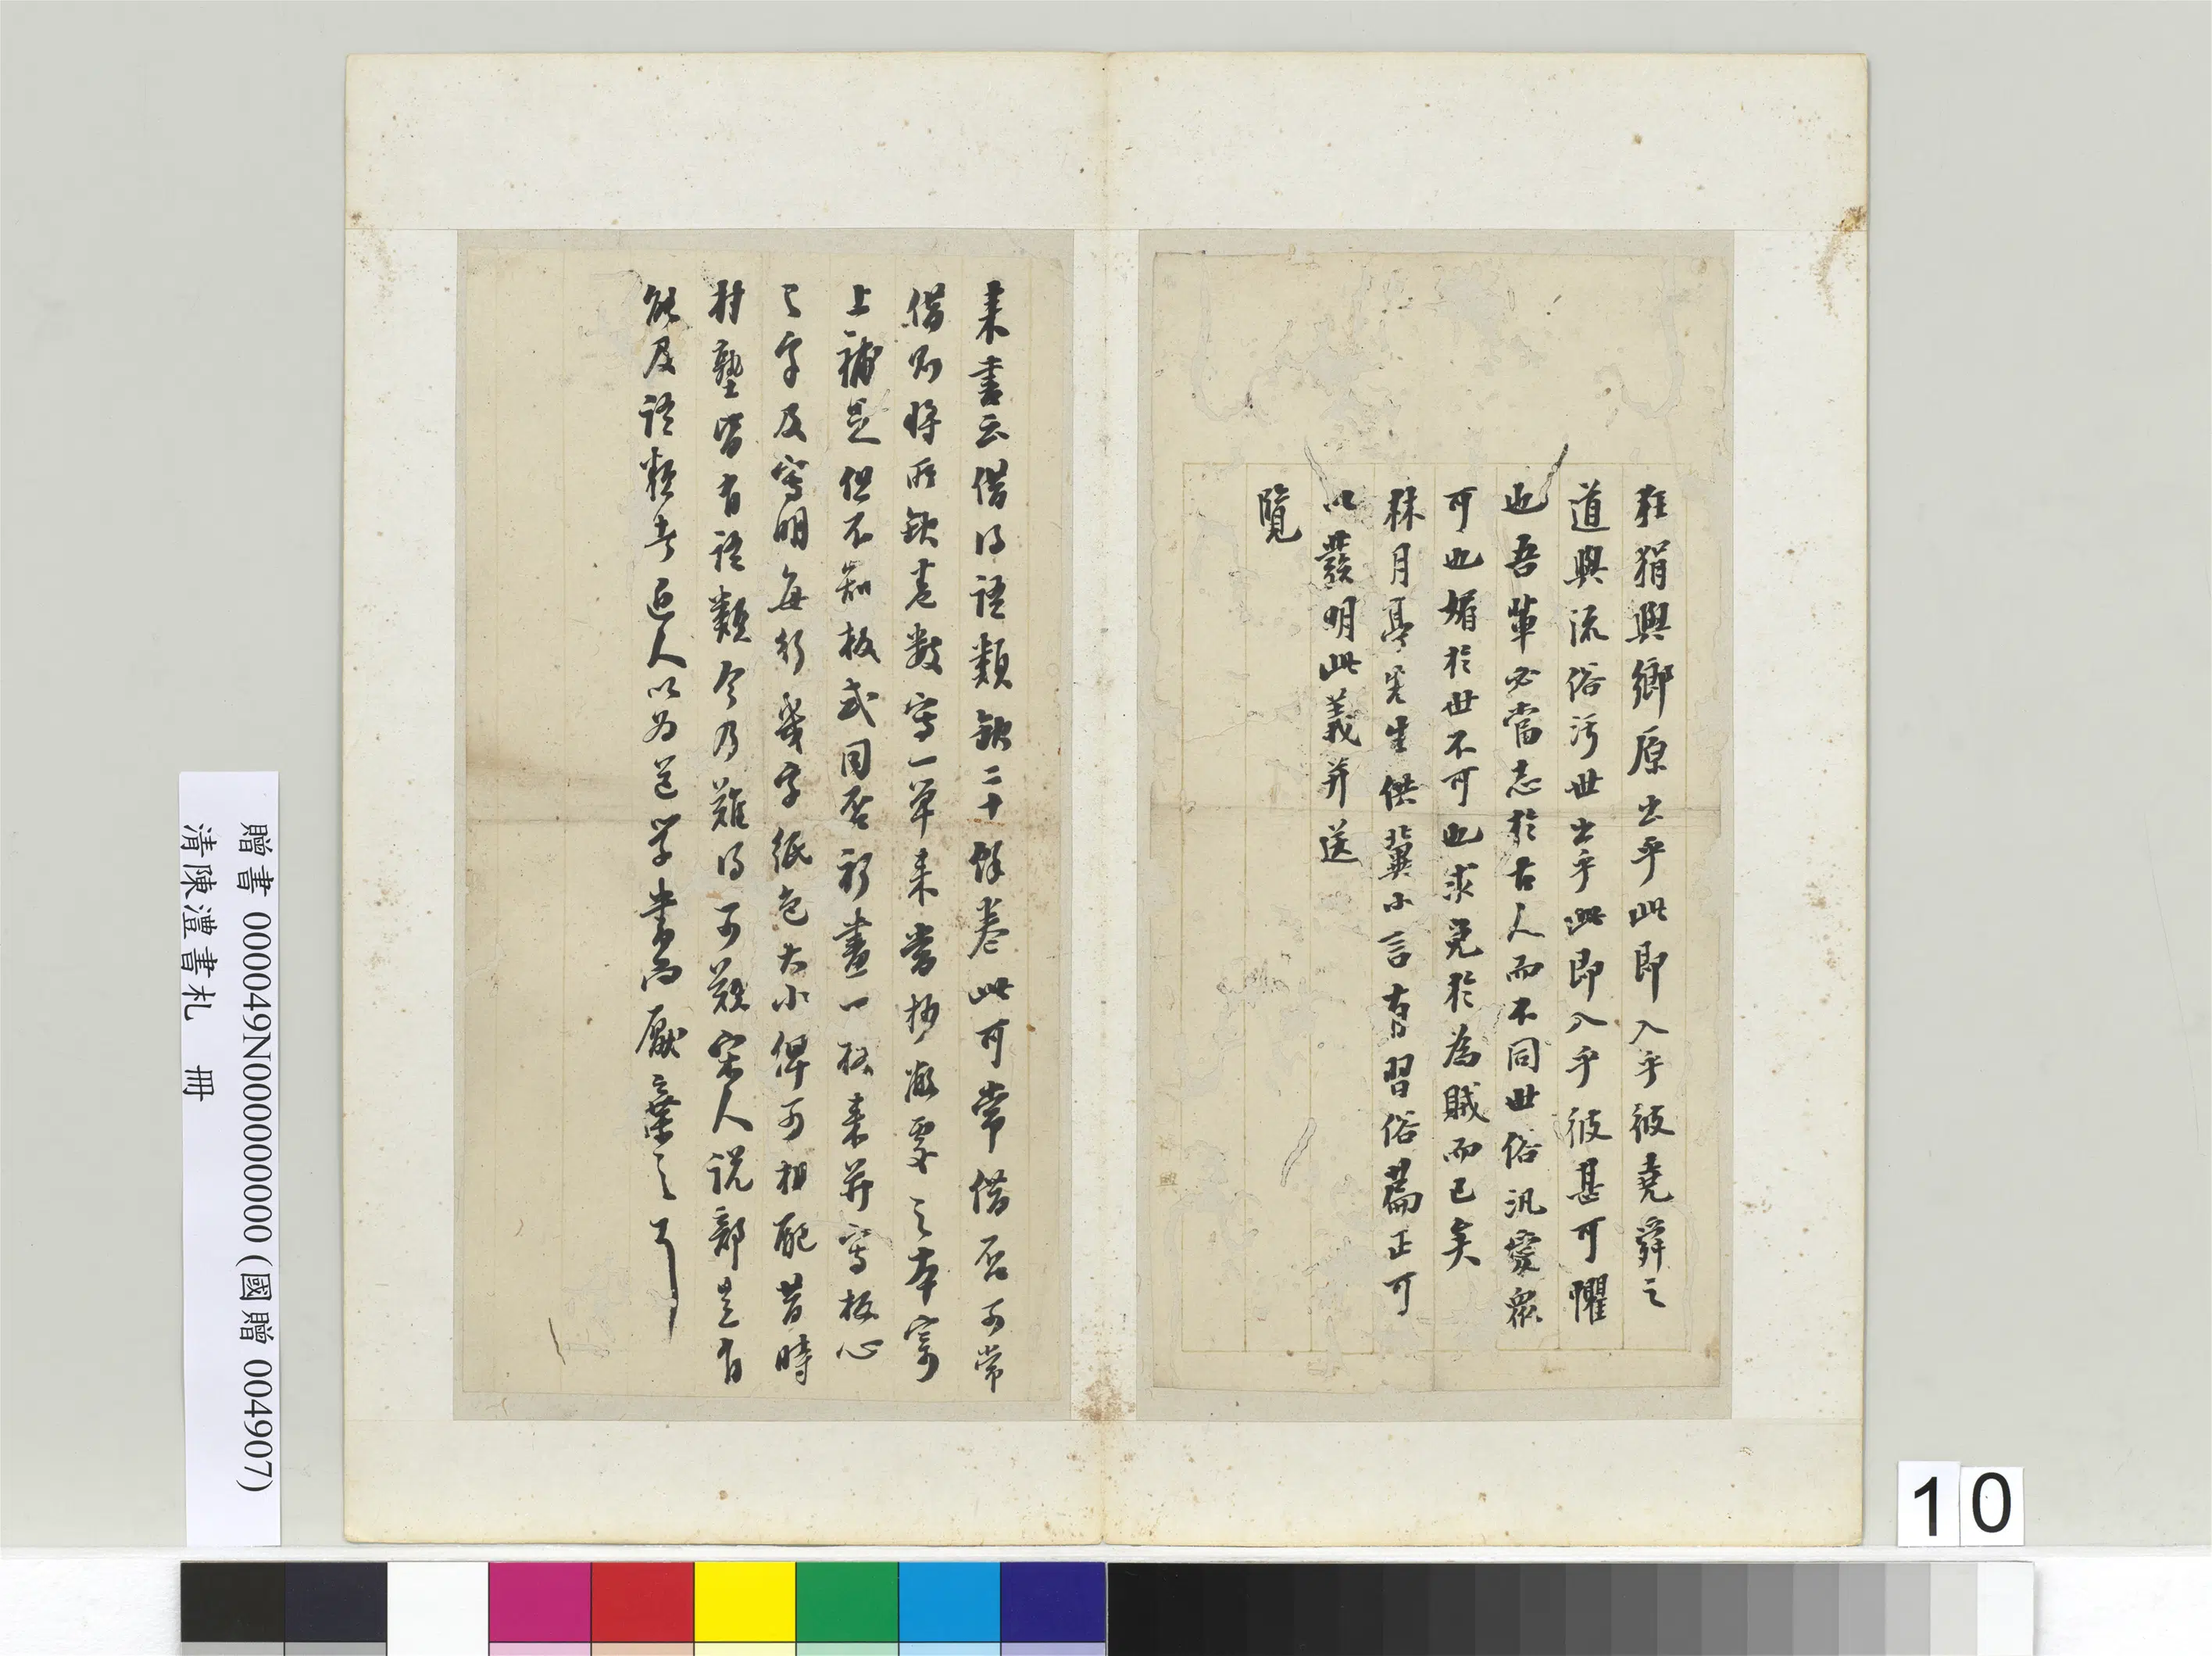 雖狷與鄉原出乎此即入乎彼堯舜之
道與流俗污世出乎此即入乎彼甚可懼
也吾輩必當志於古人而不同世俗汎愛衆
可也媚於世不可也求免於為賊而已矣
林月亭先生供冀小言有習俗篇正可
以發明此義并送
覽
來書云借得語類缺二十餘卷此可常借否可常
借則將所缺卷數寫一單來當抄最要之本寄
上補足但不知板式同否祈畫一格來并寫板心
之字及寫明每行幾字紙色大小俾可相配昔時
村塾皆有語類今乃難得可歎宋人說部豈有
能及語類者近人以為道學書而厭棄之耳
贈書 000049N000000000 (國贈 004907)
清陳澧書札 冊
10